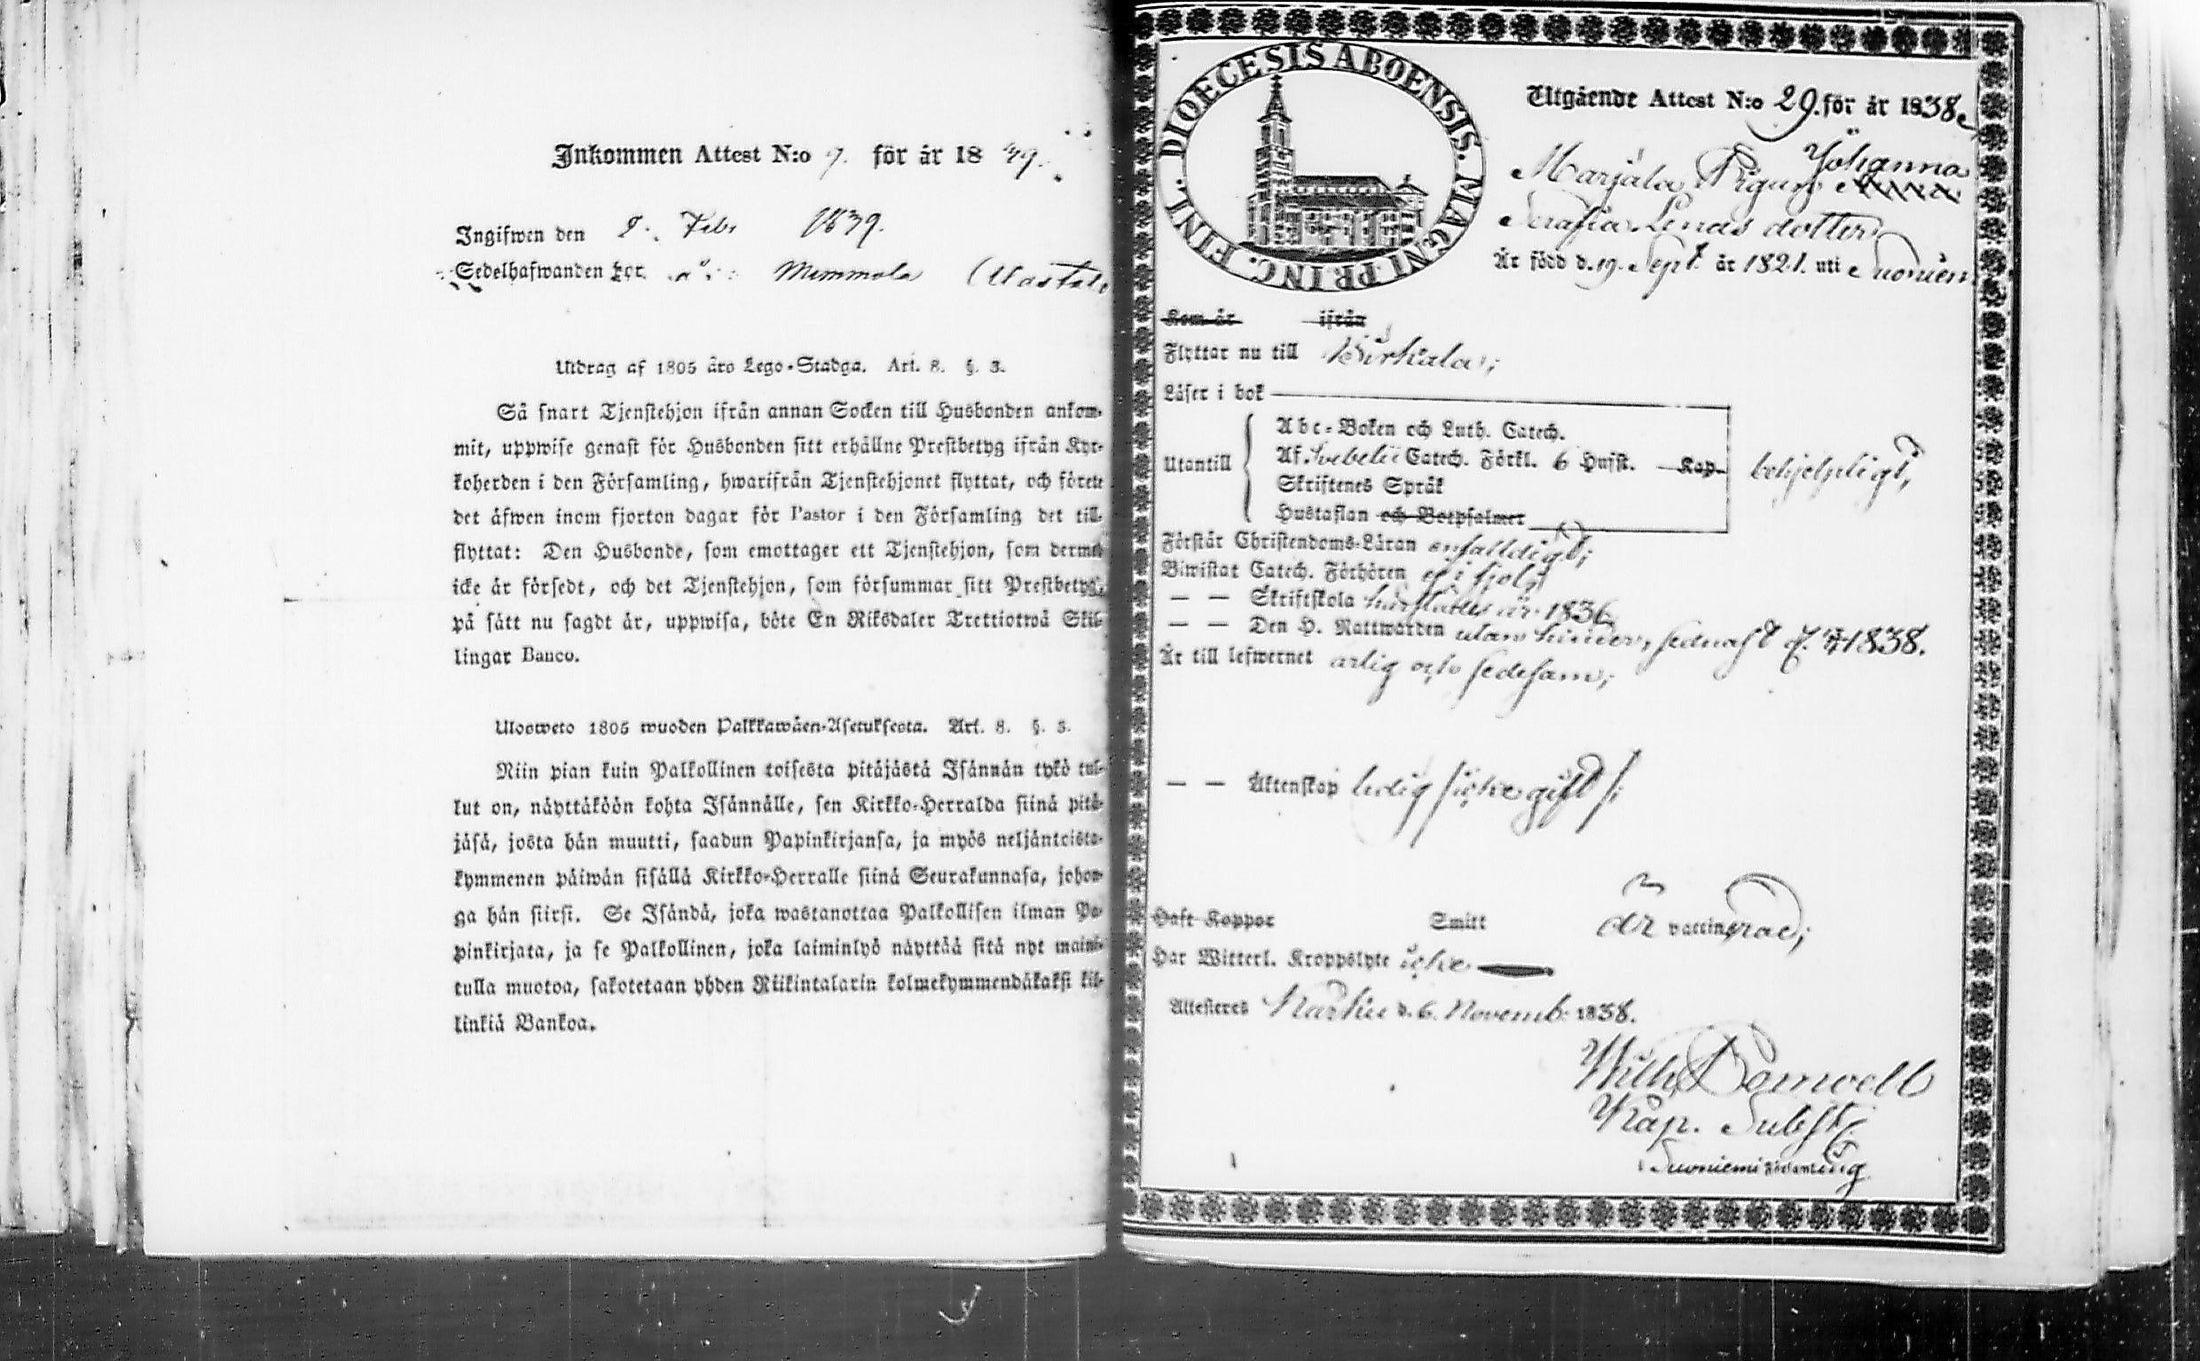 Inkommen Attest N:o 9. för år 18 39.
Ingifwen den 8. Febr 1839.
Sedelhafwanden bor
Utdrag af 1805 års Lego-Stadga. Art. 8. §. 3.
Så snart Tjenstehjon ifrån annan Socken till Husbonden ankom-
mit, uppwise genast för Husbonden sitt erhållne Prestbetyg ifrån Kyr-
koherden i den Församling, hwarifrån Tjenstehjonet flyttat, och förete
det äfwen inom fjorton dagar för Pastor i den Församling det till-
flyttat: Den Husbonde, som emottager ett Tjenstehjon, som dermed
icke är försedt, och det Tjenstehjon, som försummar sitt Prestbetyg,
på sätt nu sagdt är, uppwisa, böte En Riksdaler Trettiotwå Skil-
lingar Banco.
Ulosweto 1805 wuoden Palkkawäen-Asetuksesta. Art. 8. §. 3.
Niin pian kuin Palkollinen toisesta pitäjästä Isännän tykö tul-
lut on, näyttäköön kohta Isännälle, sen Kirkko-Herralda siinä pitä-
jäsä, josta hän muutti, saadun Papinkirjansa, ja myös neljäntoista-
kymmenen päiwän sisällä Kirkko-Herralle siinä Seurakunnasa, johon-
ga hän siirsi. Se Isändä, joka wastanottaa Palkollisen ilman Pa-
pinkirjata, ja se Palkollinen, joka laiminlyö näyttää sitä nyt maini-
tulla muotoa, sakotetaan yhden Riikintalarin kolmekymmendäkaksi kil-
linkiä Bankoa.
DIOECESIS ABOENSIS. MAGNI PRINC. FINL.
Utgående Attest N:o 29. för år 1838
Johanna
Marjala Pigan
Serafia Lenas dotter
Är född d. 19. Sept. år 1821. uti Suoniemi
Kom år ifrån
Flyttar nu till Birkala;
Läser i bok
Utantill
Abc-Boken och Luth. Catech.
Af Svebelii Catech. Förkl. 6 Hufst. Kap.
Skriftenes Språk
Hustaflan och Botpsalmer
behjelpligt,
Förstår Christendoms-Läran enfalldigt;
Biwistat Catech. Förhören i fjol,
— — Skriftskola härstädes år 1836
— — Den H. Nattwarden utan hinder, sednast d. 1838.
Är till lefwernet ärlig och sedesam;
— — Äktenskap ledig icke gift
Haft Koppor Smitt är vaccinerad;
Har Witterl. Kroppslyte icke
Attesteres Karkku d. 6. Novemb. 1838.
Wilh.
Kap. Subst.
i Suoniemi Församling